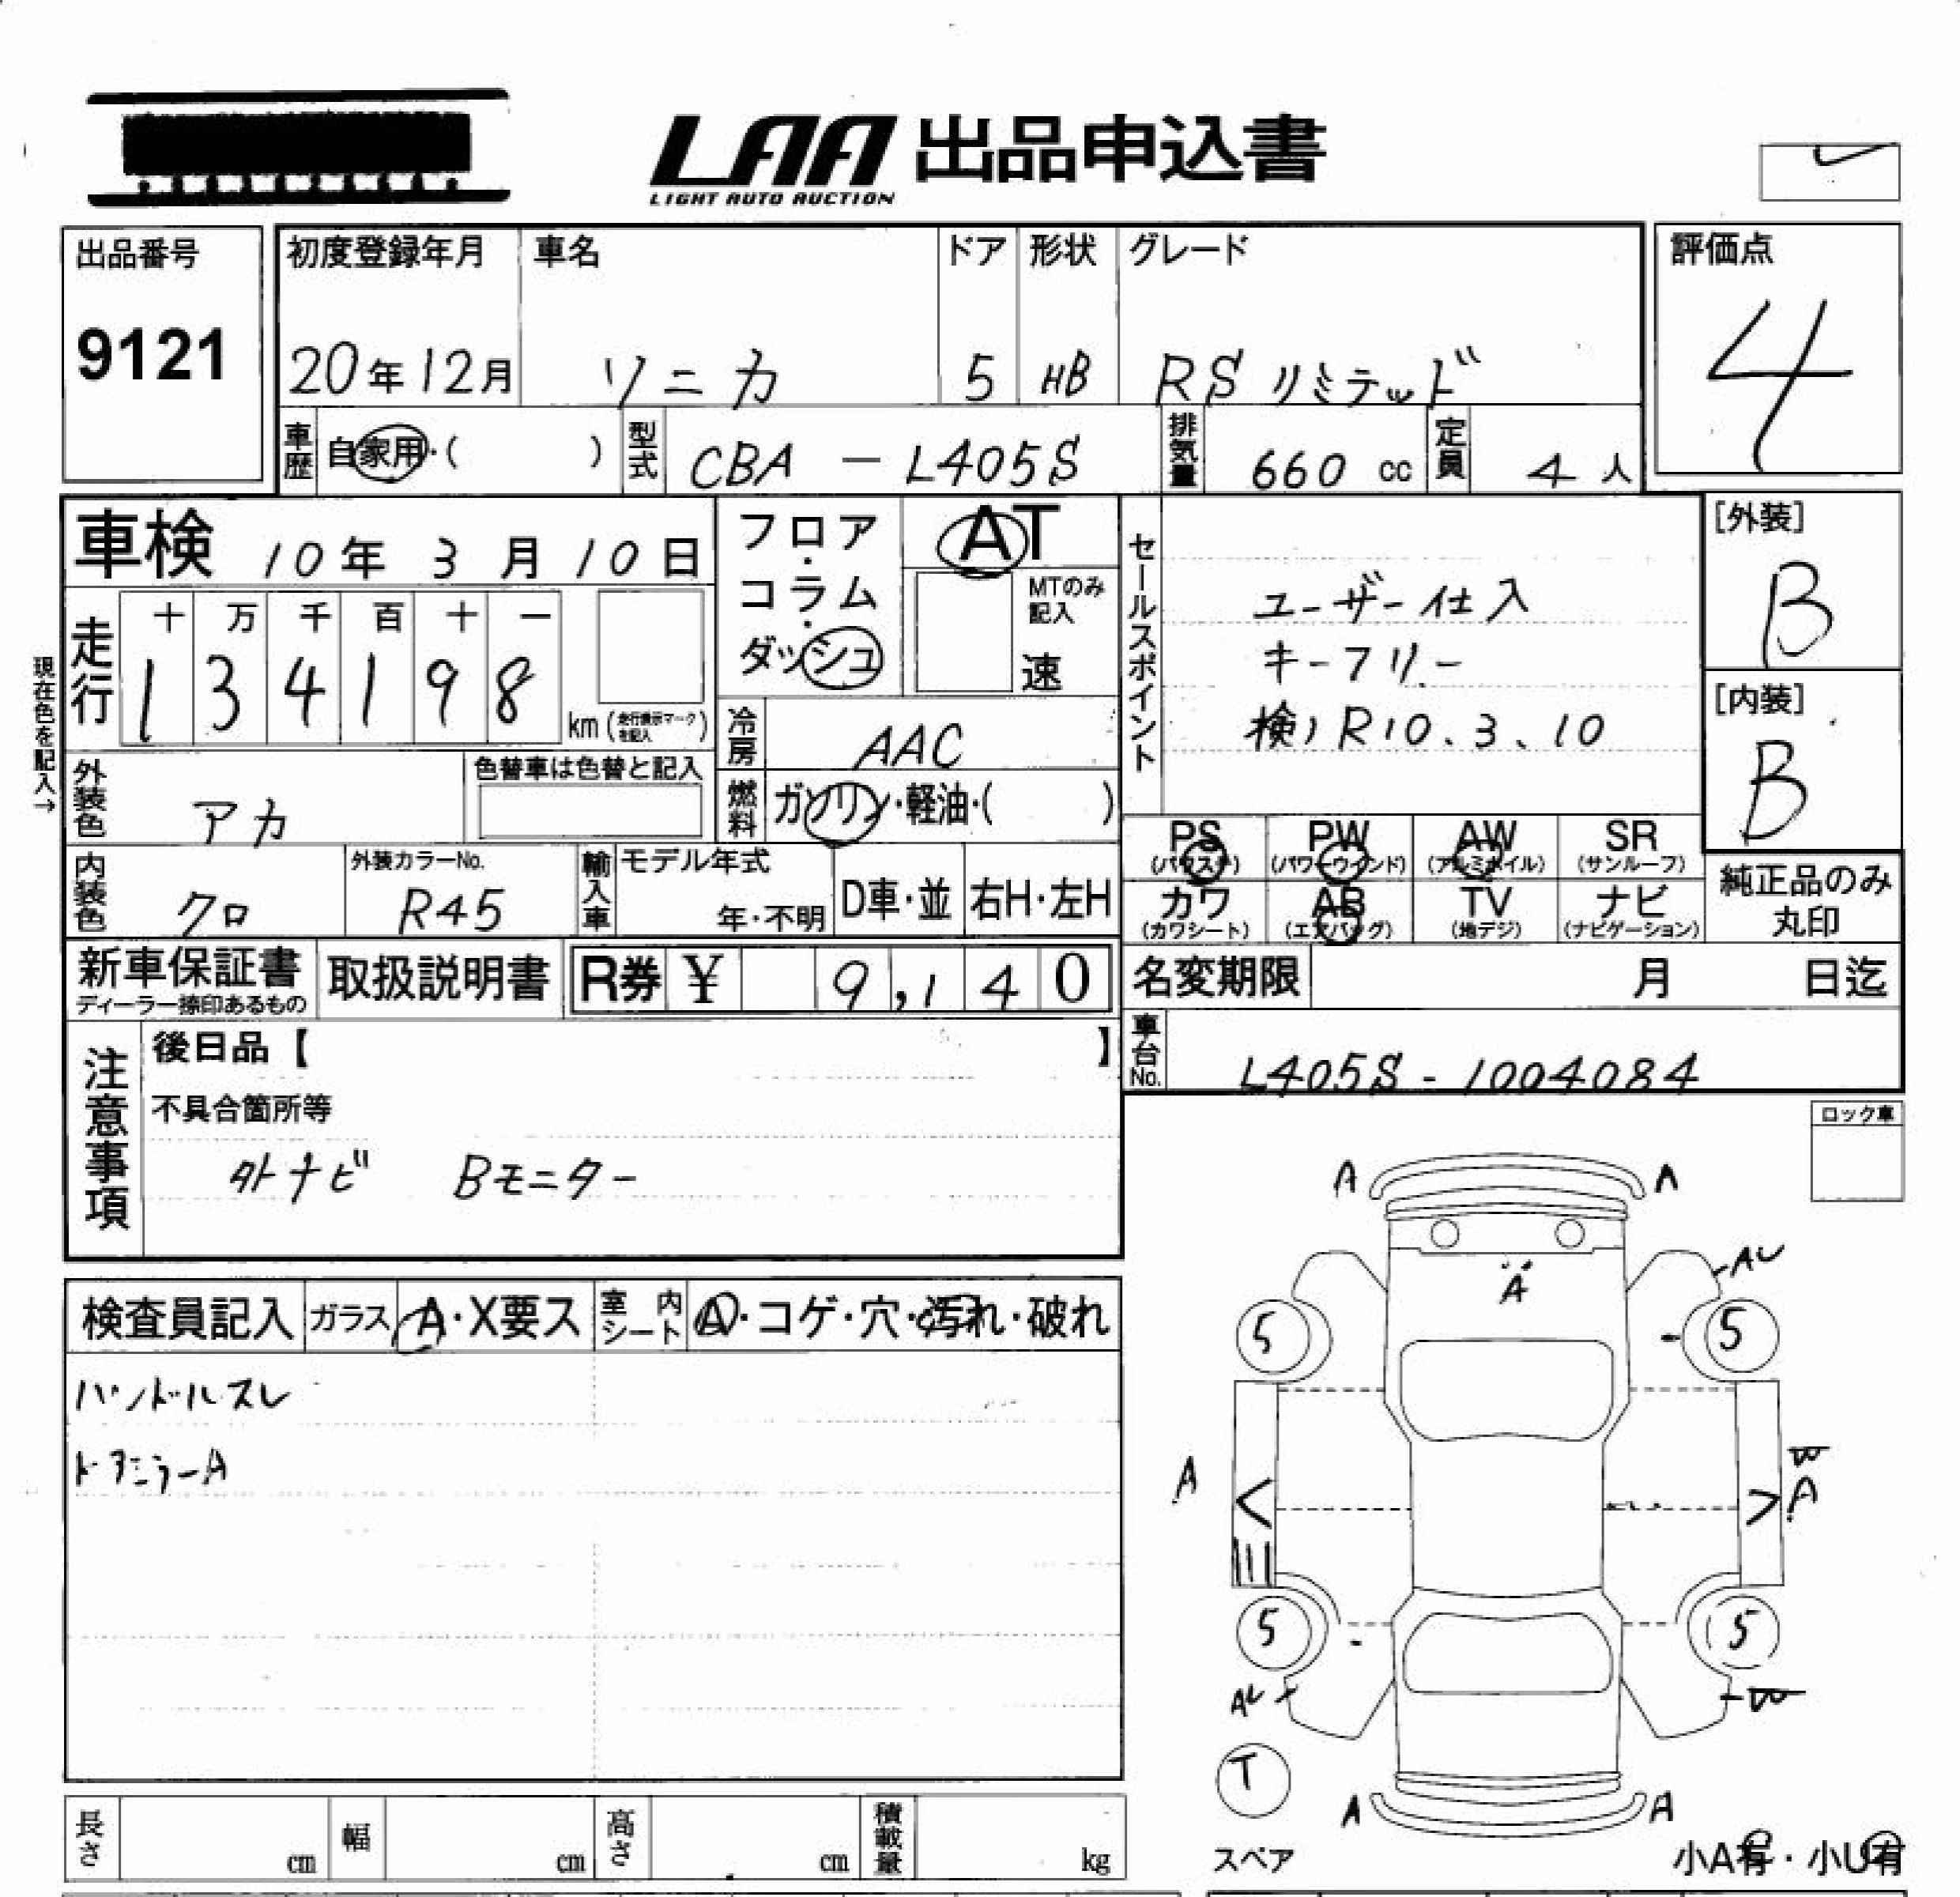 LAA 出品申込書
LIGHT AUTO AUCTION
出品番号
9121
初度登録年月 車名 ドア 形状 グレード
20年12月 ソニカ 5 HB RSリミテッド
評価点
4
車歴 自家用・( ) 型式 CBA-L405S 排気量 660cc 定員 4人
車検 10年3月10日
フロア・コラム・ダッシュ
AT
MTのみ記入
速
走行 十 万 千 百 十 一
134198 km(走行表示マークを記入)
現在色を記入→
冷房 AAC
燃料 ガソリン・軽油・( )
外装色 アカ
色替車は色替と記入
内装色 クロ
外装カラーNo. R45
輸入車 モデル年式 年・不明 D車・並 右H・左H
セールスポイント
ユーザー仕入
キーフリー
検)R10.3.10
[外装]
B
[内装]
B
PS (パワステ) PW (パワーウインド) AW (アルミホイル) SR (サンルーフ)
カワ (カワシート) AB (エアバッグ) TV (地デジ) ナビ (ナビゲーション)
純正品のみ丸印
新車保証書
ディーラー捺印あるもの
取扱説明書
R券 ¥ 9,140
名変期限 月 日迄
車台No. L405S-1004084
注意事項
後日品【 】
不具合箇所等
外ナビ Bモニター
ロック車
検査員記入 ガラス A・X要ス 室内シート A・コゲ・穴・汚れ・破れ
ハンドルスレ
ドアミラーA
A A
AU
A
5 5
A
A
5 5
AU
T
A A
スペア
小A有・小U有
長さ cm 幅 cm 高さ cm 積載量 kg